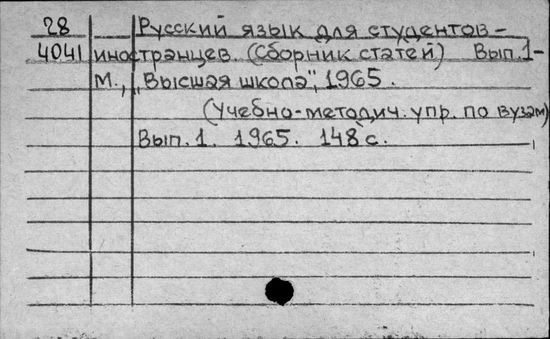 28 Русский язык для студентов-
4041 иностранцев. (Сборник статей) Вып.1-
М., „Высшая школа", 1965.
(Учебно-методич. упр. по вузам)
Вып. 1. 1965. 148 с.